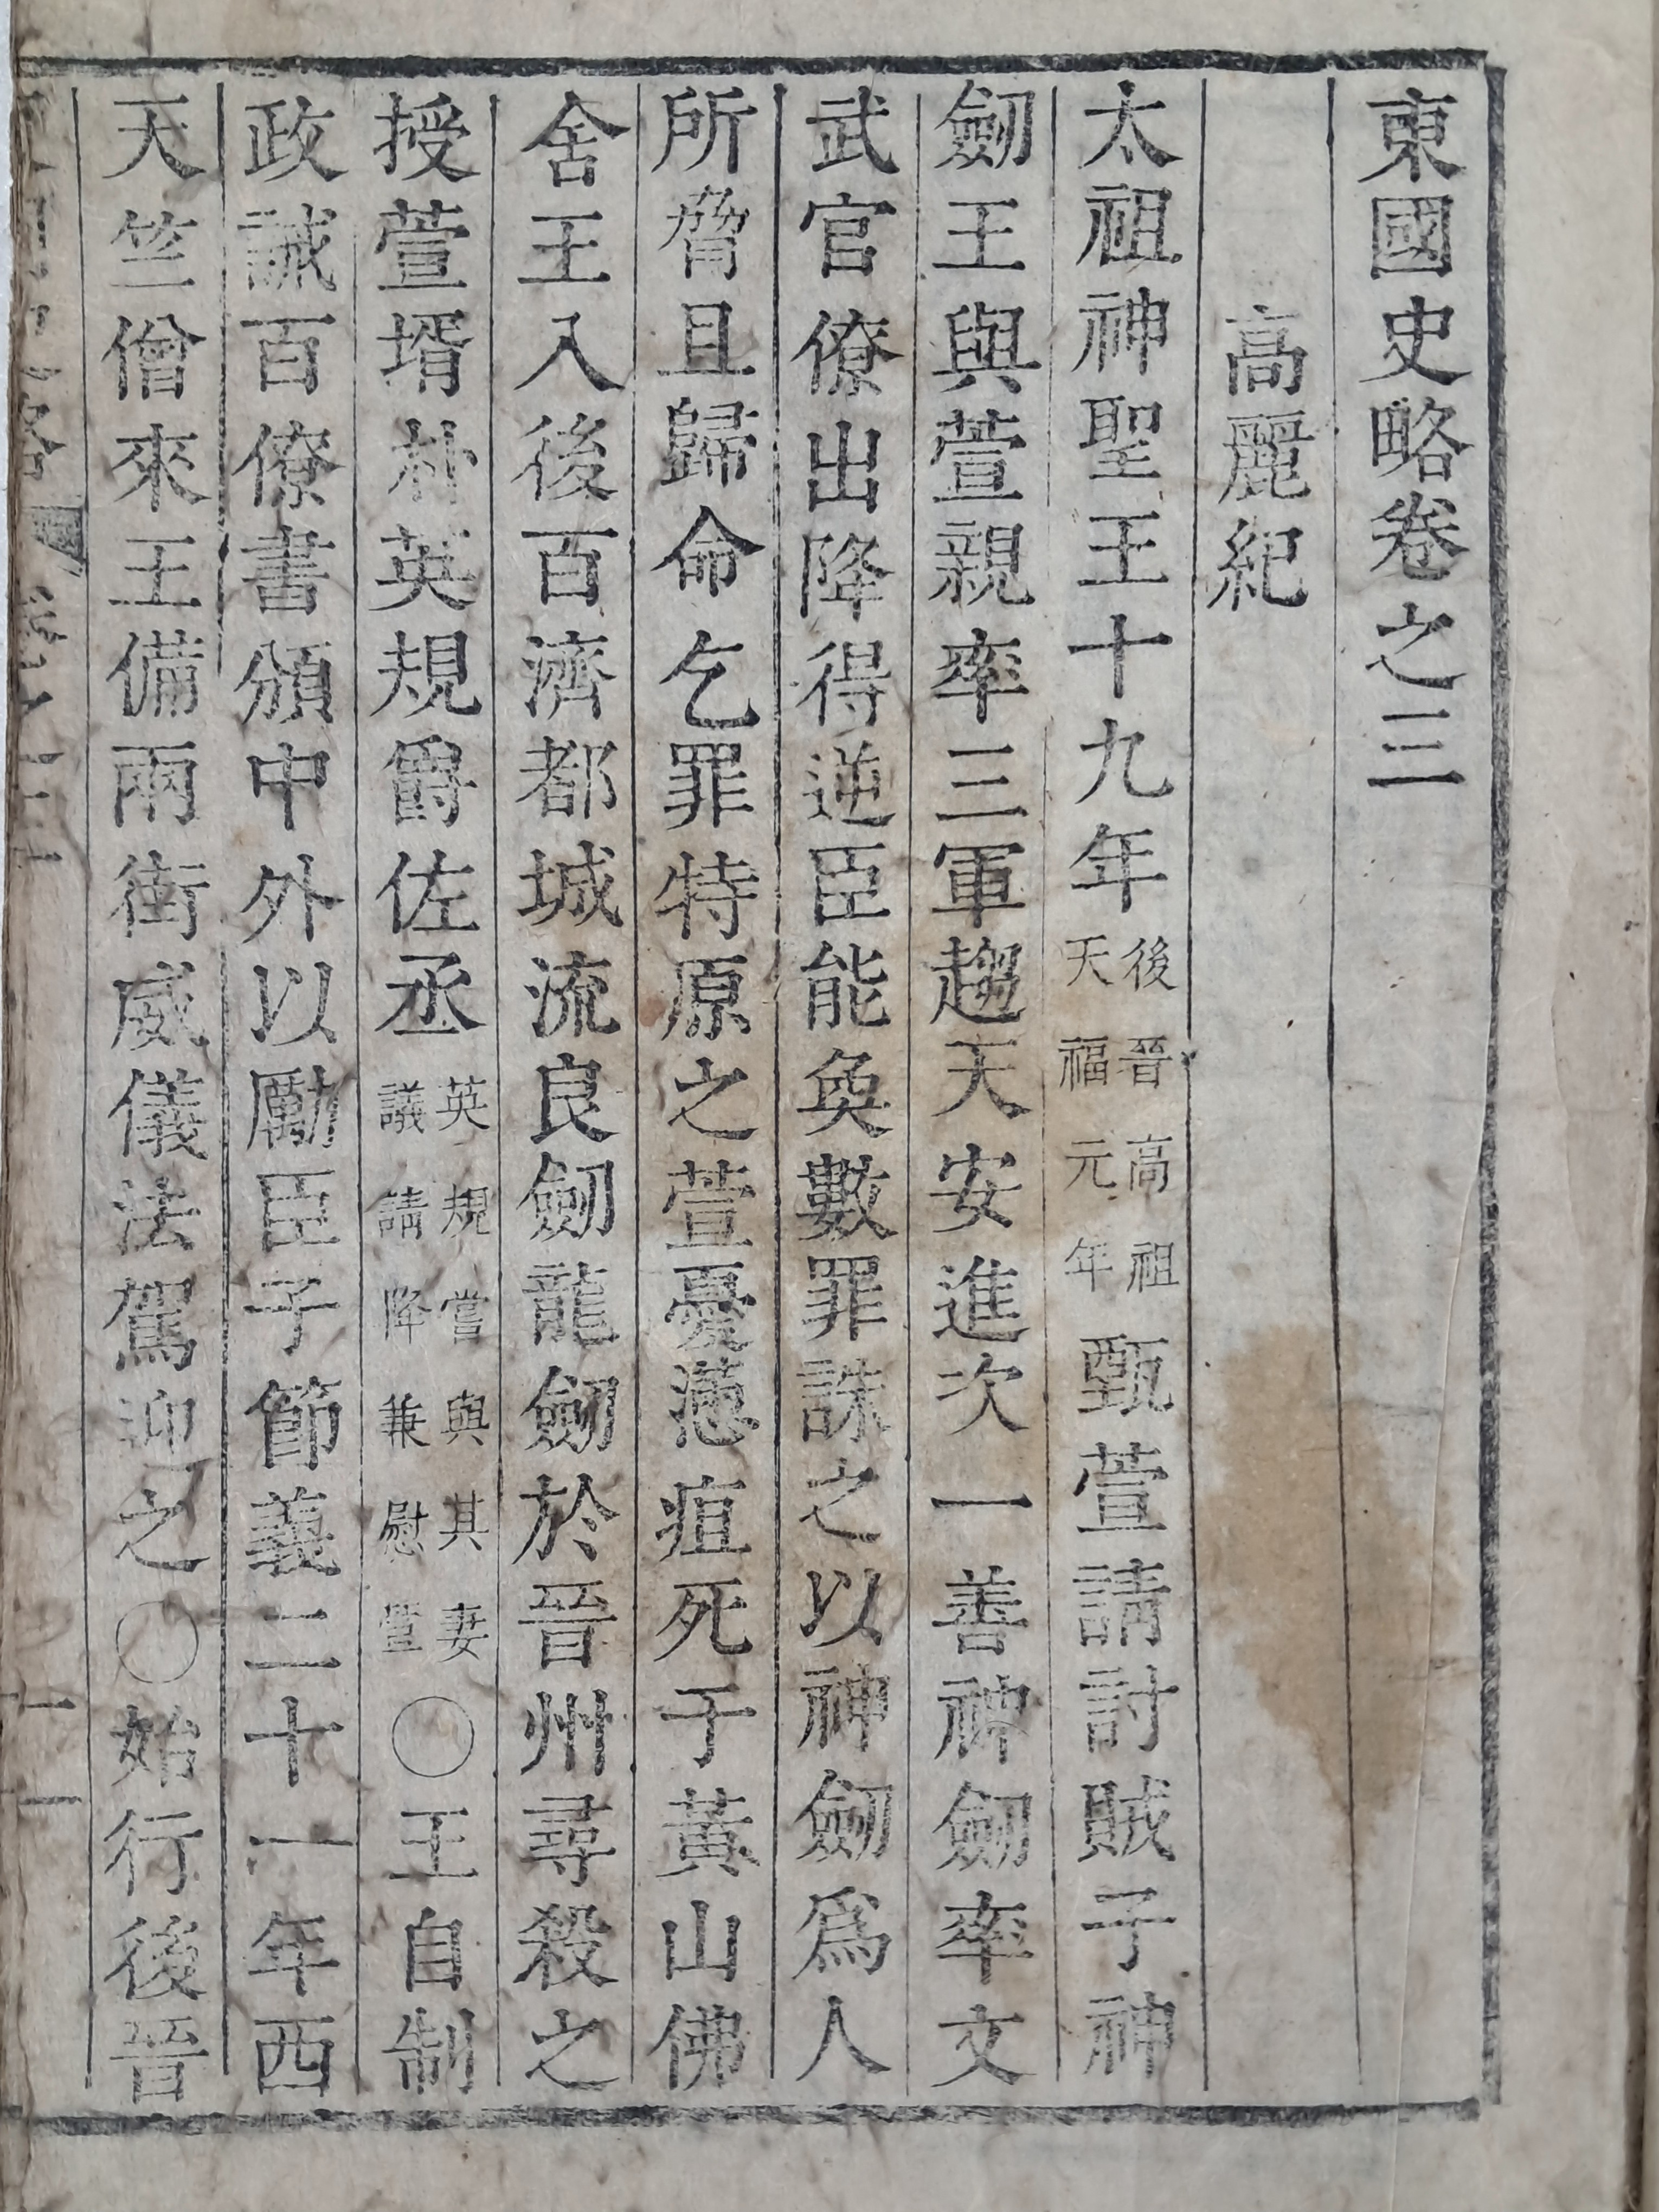 東國史略卷之三
高麗紀
太祖神聖王十九年後晉高祖天福元年甄萱請討賊子神
劒王與萱親率三軍趨天安進次一善神劒率文
武官僚出降得逆臣能奐數罪誅之以神劒爲人
所脅且歸命乞罪特原之萱憂懣疽死于黃山佛
舍王入後百濟都城流良劒龍劒於晉州尋殺之
授萱壻朴英規爵佐丞英規嘗與其妻議請降兼慰萱○王自制
政誡百僚書頒中外以勵臣子節義二十一年西
天竺僧來王備兩街威儀法駕迎之○始行後晉